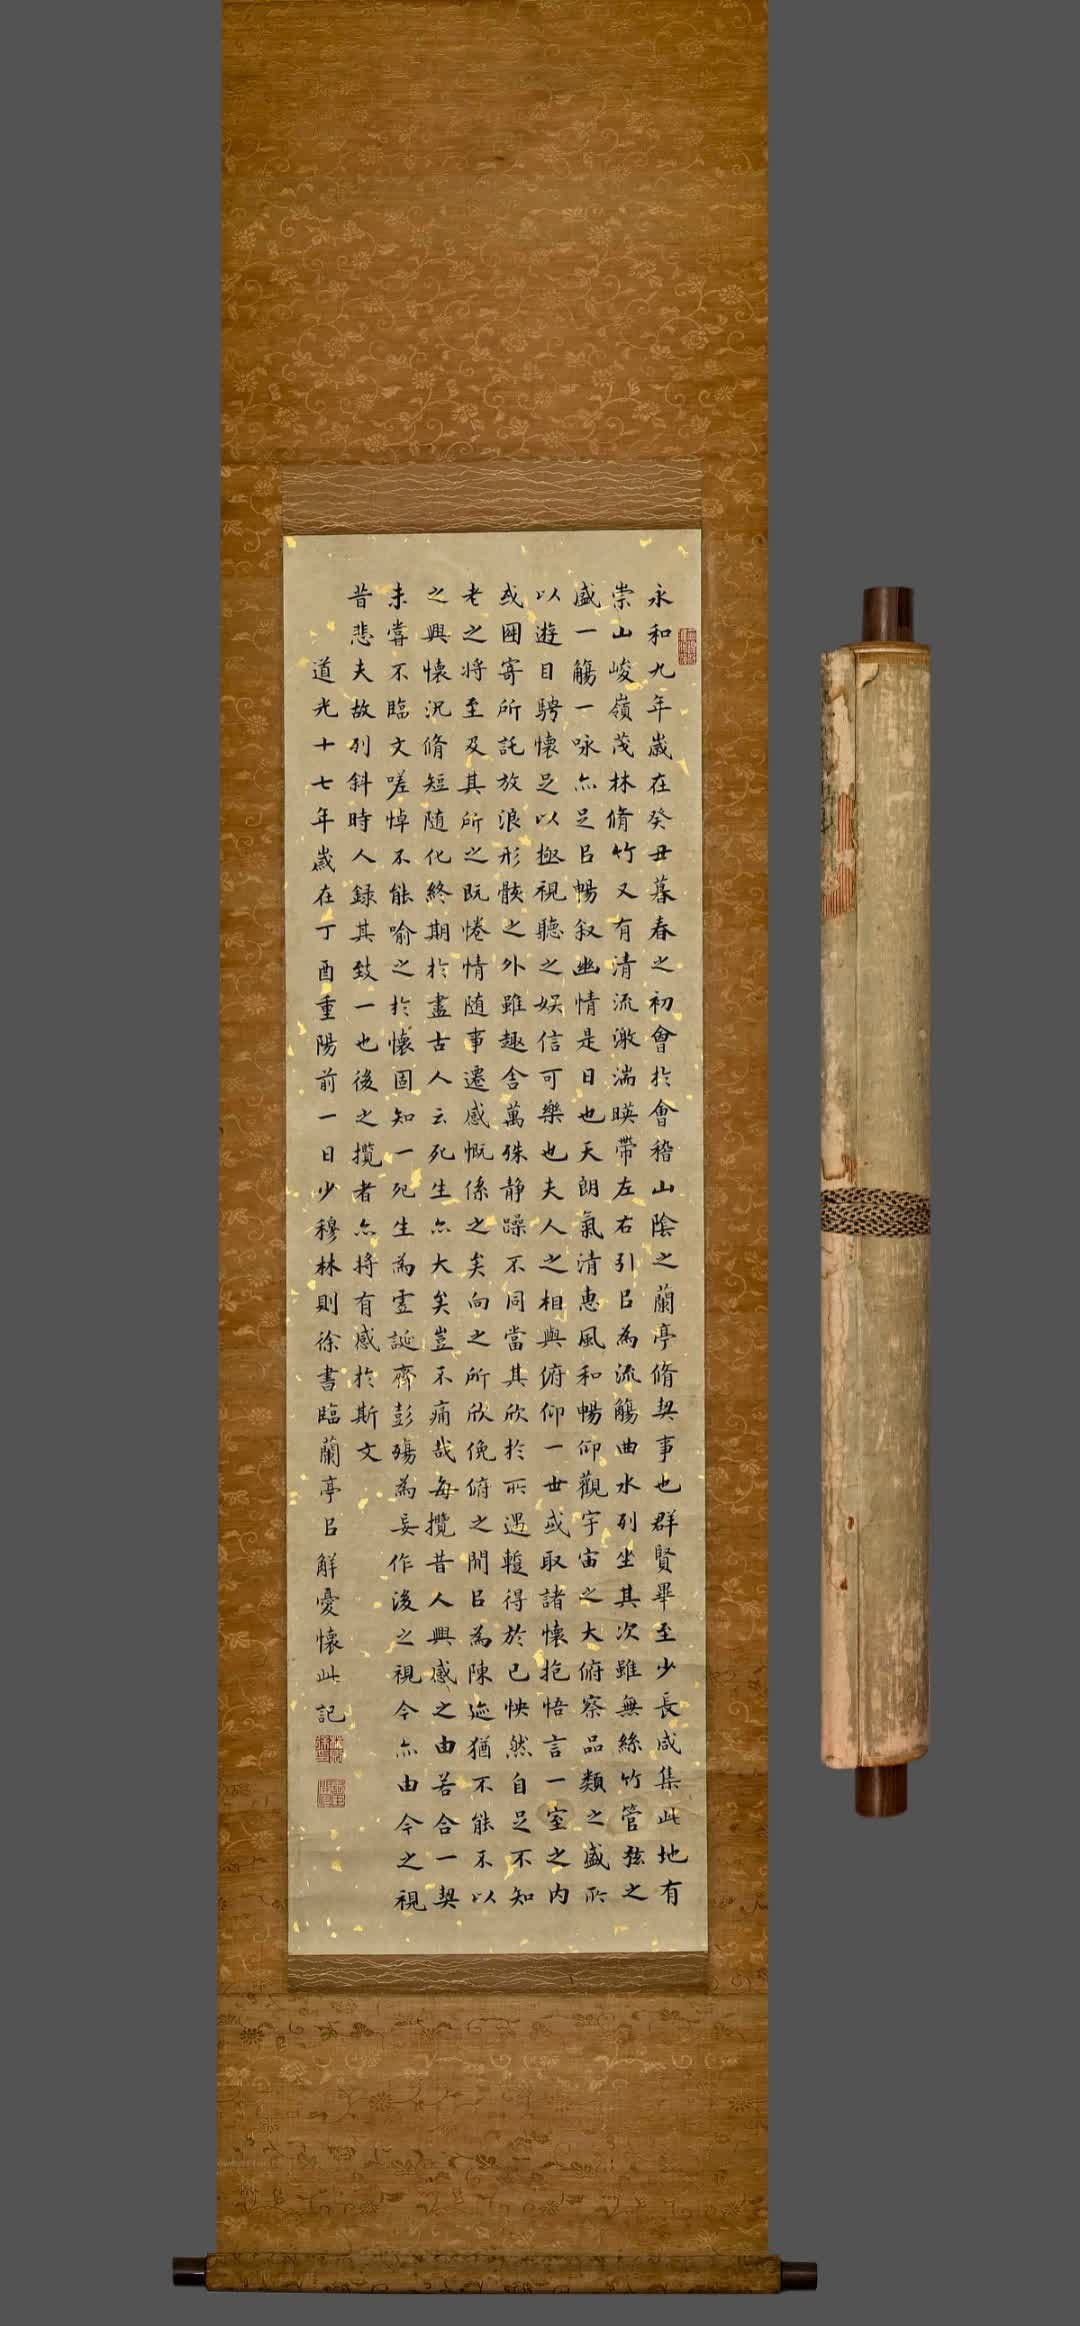 永和九年歲在癸丑暮春之初會於會稽山陰之蘭亭脩契事也群賢畢至少長咸集此地有
崇山峻嶺茂林脩竹又有清流激湍暎帶左右引㠯為流觴曲水列坐其次雖無絲竹管弦之
盛一觴一咏亦足㠯暢叙幽情是日也天朗氣清惠風和暢仰觀宇宙之大俯察品類之盛所
以遊目騁懷足以極視聽之娛信可樂也夫人之相與俯仰一世或取諸懷抱悟言一室之内
或因寄所託放浪形骸之外雖趣舍萬殊静躁不同當其欣於所遇蹔得於己怏然自足不知
老之將至及其所之既惓情随事遷感慨係之矣向之所欣俛俯之間㠯為陳迹猶不能不以
之興懷況脩短随化終期於盡古人云死生亦大矣豈不痛哉每攬昔人興感之由若合一契
未甞不臨文嗟悼不能喻之於懷固知一死生為虛誕齊彭殤為妄作後之視今亦由今之視
昔悲夫故列斜時人録其致一也後之攬者亦将有感於斯文
道光十七年歲在丁酉重陽前一日少穆林則徐書臨蘭亭㠯解憂懷此記